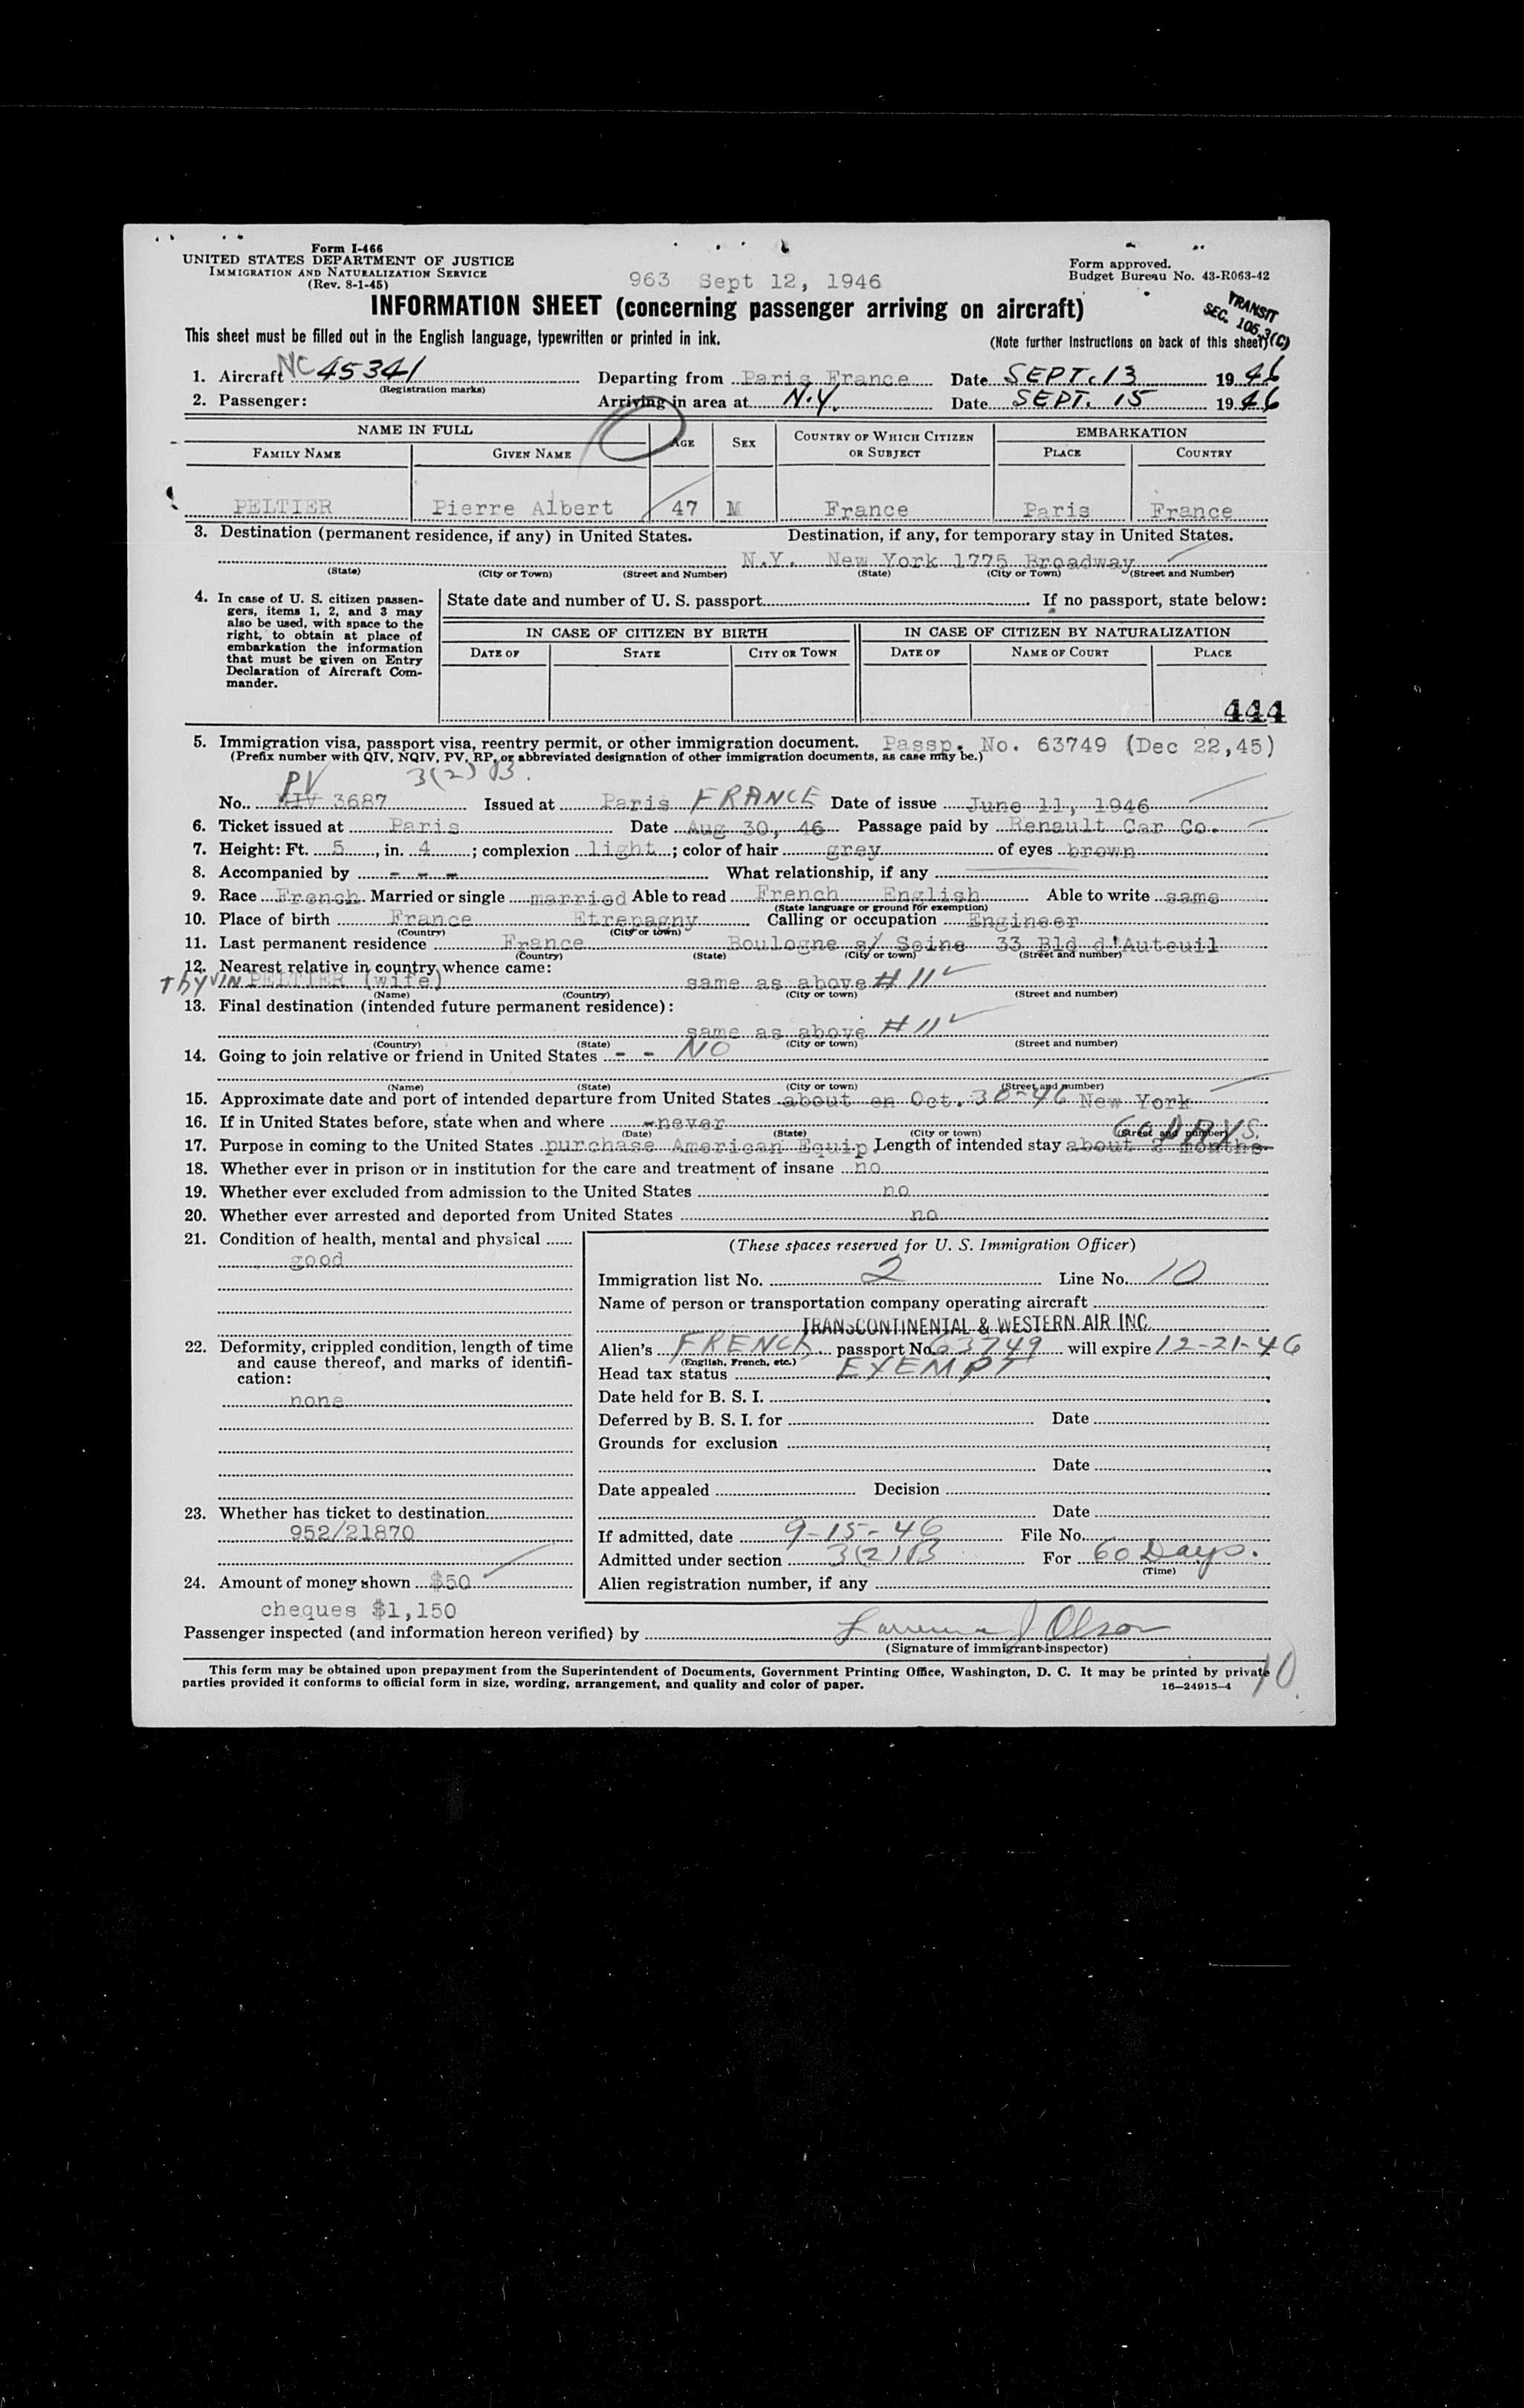 Form I-466
UNITED STATES DEPARTMENT OF JUSTICE
IMMIGRATION AND NATURALIZATION SERVICE
(Rev. 8-1-45)
Form approved.
Budget Bureau No. 43-R063-42
963 Sept 12, 1946
INFORMATION SHEET (concerning passenger arriving on aircraft)
TRANSIT
SEC. 106.3(C)
This sheet must be filled out in the English language, typewritten or printed in ink. (Note further instructions on back of this sheet)
1. Aircraft NC 45341 Departing from Paris France Date SEPT. 13 1946
(Registration marks)
2. Passenger: Arriving in area at N.Y. Date SEPT. 15 1946
NAME IN FULL AGE SEX COUNTRY OF WHICH CITIZEN OR SUBJECT EMBARKATION
FAMILY NAME GIVEN NAME PLACE COUNTRY
PELTIER Pierre Albert 47 M France Paris France
3. Destination (permanent residence, if any) in United States. Destination, if any, for temporary stay in United States.
N.Y. New York 1775 Broadway
(State) (City or Town) (Street and Number) (State) (City or Town) (Street and Number)
4. In case of U. S. citizen passengers, items 1, 2, and 3 may also be used, with space to the right, to obtain at place of embarkation the information that must be given on Entry Declaration of Aircraft Commander.
State date and number of U. S. passport If no passport, state below:
IN CASE OF CITIZEN BY BIRTH IN CASE OF CITIZEN BY NATURALIZATION
DATE OF STATE CITY OR TOWN DATE OF NAME OF COURT PLACE
444
5. Immigration visa, passport visa, reentry permit, or other immigration document. Passp. No. 63749 (Dec 22,45)
(Prefix number with QIV, NQIV, PV, RP, or abbreviated designation of other immigration documents, as case may be.)
PV 3(2) B.
No. 3687 Issued at Paris FRANCE Date of issue June 11, 1946
6. Ticket issued at Paris Date Aug 30, 46 Passage paid by Renault Car Co.
7. Height: Ft. 5, in. 4; complexion light; color of hair grey of eyes brown
8. Accompanied by - - - What relationship, if any
9. Race French Married or single married Able to read French English Able to write same
(State language or ground for exemption)
10. Place of birth France Etrepagny Calling or occupation Engineer
(Country) (City or town)
11. Last permanent residence France Boulogne s/ Seine 33 Bld d'Auteuil
(Country) (State) (City or town) (Street and number)
12. Nearest relative in country whence came:
PELTIER (wife) same as above # 11
(Name) (Country) (City or town) (Street and number)
13. Final destination (intended future permanent residence):
same as above # 11
(Country) (State) (City or town) (Street and number)
14. Going to join relative or friend in United States - - NO
(Name) (State) (City or town) (Street and number)
15. Approximate date and port of intended departure from United States about en Oct. 30-46 New York
16. If in United States before, state when and where never
(Date) (State) (City or town) (Street and number)
60 DAYS.
17. Purpose in coming to the United States purchase American Equip Length of intended stay about 2 months
18. Whether ever in prison or in institution for the care and treatment of insane no
19. Whether ever excluded from admission to the United States no
20. Whether ever arrested and deported from United States no
21. Condition of health, mental and physical
good
22. Deformity, crippled condition, length of time and cause thereof, and marks of identification:
none
23. Whether has ticket to destination
952/21870
24. Amount of money shown $50
cheques $1,150
(These spaces reserved for U. S. Immigration Officer)
Immigration list No. 2 Line No. 10
Name of person or transportation company operating aircraft
TRANSCONTINENTAL & WESTERN AIR INC
Alien's FRENCH passport No. 63749 will expire 12-21-46
(English, French, etc.)
Head tax status EXEMPT
Date held for B. S. I.
Deferred by B. S. I. for Date
Grounds for exclusion
Date
Date appealed Decision
Date
If admitted, date 9-15-46 File No.
Admitted under section 3(2) B For 60 Days.
(Time)
Alien registration number, if any
Passenger inspected (and information hereon verified) by Lawrence J Olson
(Signature of immigrant inspector)
This form may be obtained upon prepayment from the Superintendent of Documents, Government Printing Office, Washington, D. C. It may be printed by private
parties provided it conforms to official form in size, wording, arrangement, and quality and color of paper. 16—24915-4
10